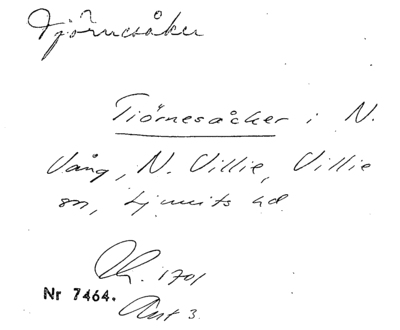 Tjörnesåker
Tiörnesacker i N.
Vång, N. Villie, Villie
sn, Ljunits hd
Lh. 1701
Nr 7464.
Akt 3.